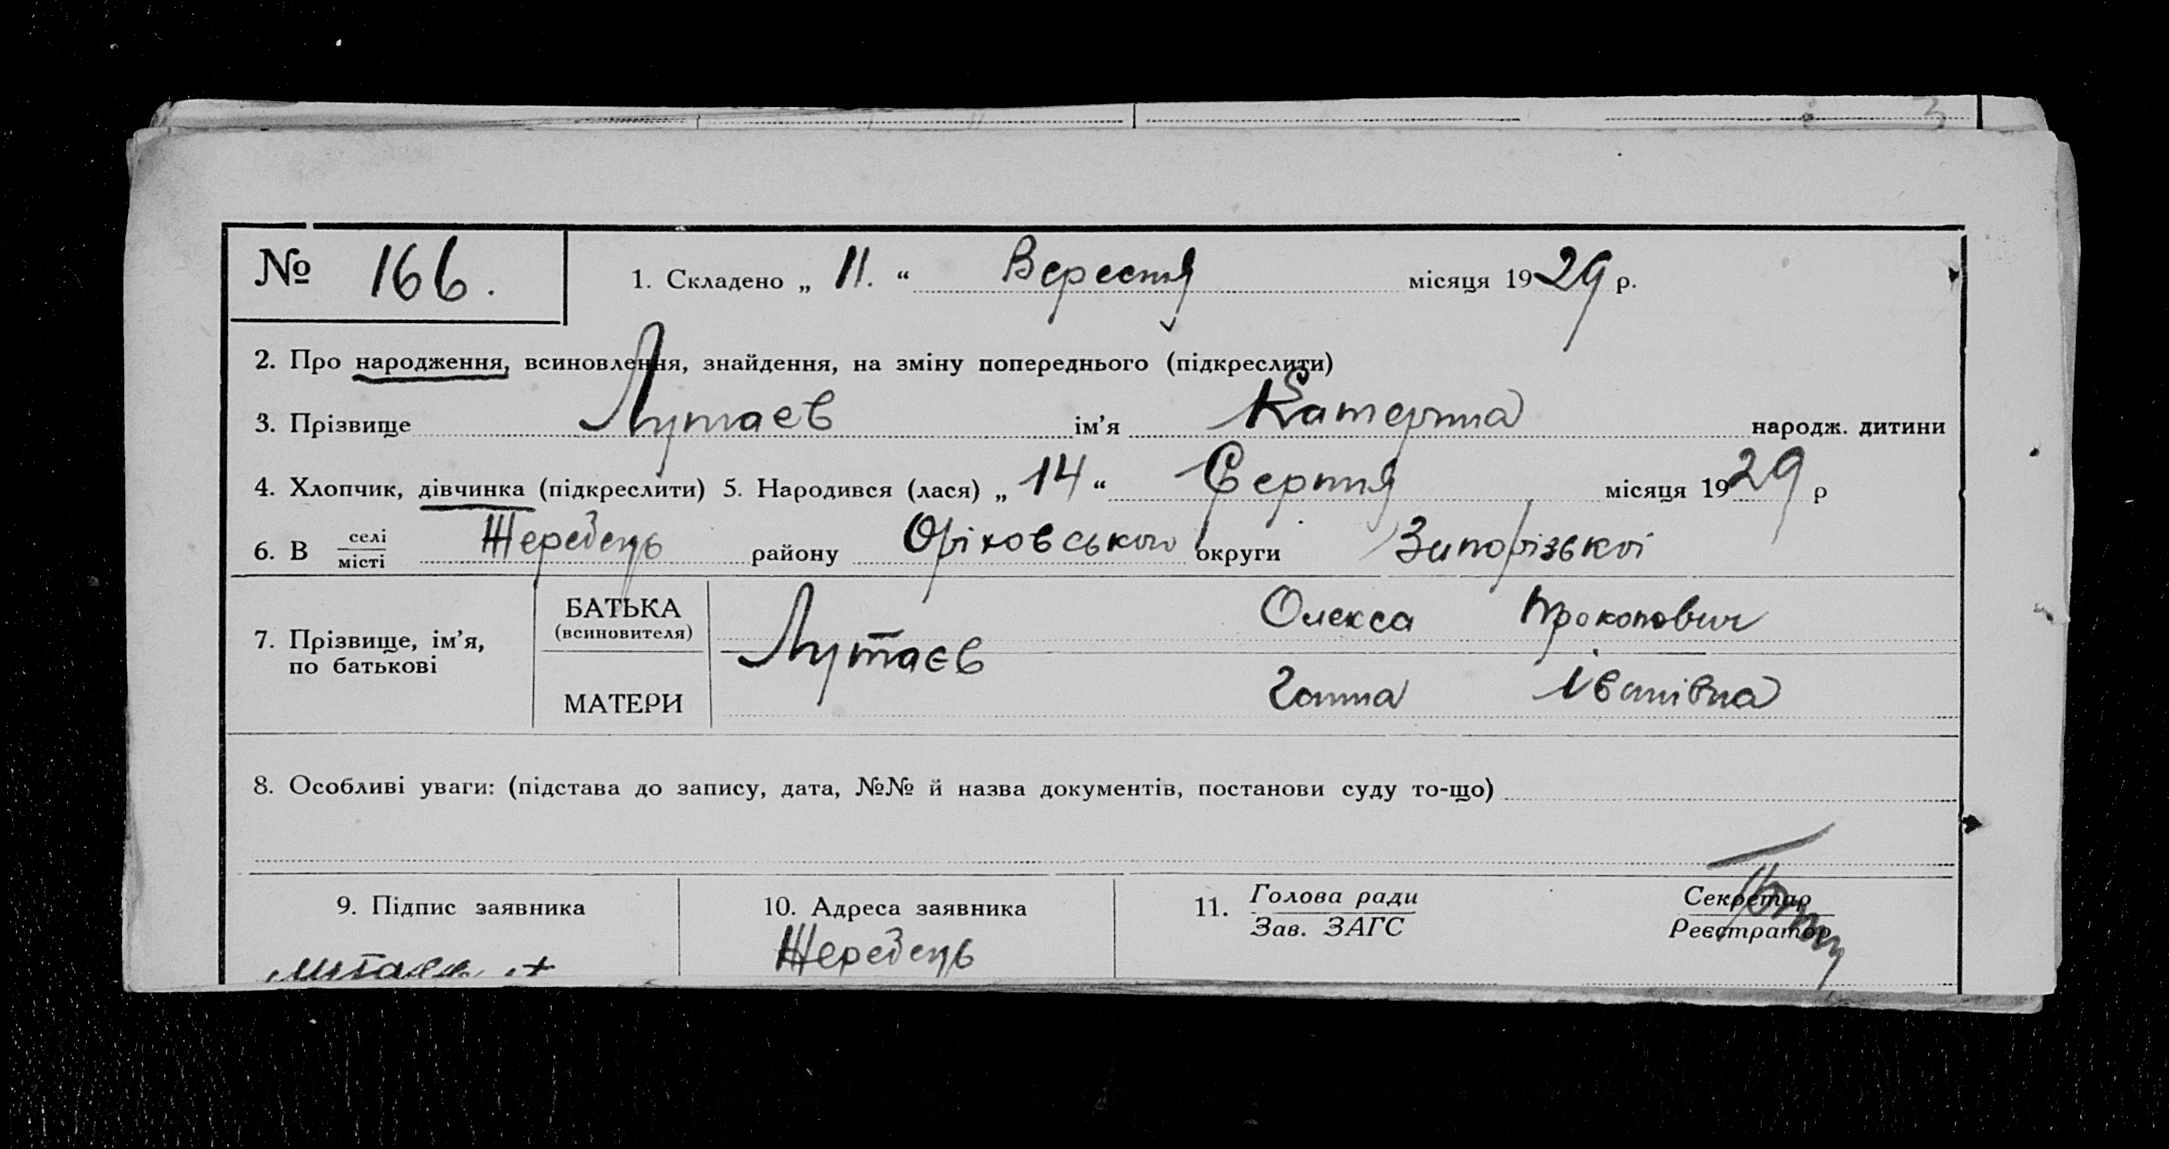 № 166.
1. Складено „ 11. “ Вересня місяця 1929 р.
2. Про народження, всиновлення, знайдення, на зміну попереднього (підкреслити)
3. Прізвище Лутаєв ім’я Катерина народж. дитини
4. Хлопчик, дівчинка (підкреслити) 5. Народився (лася) „ 14 “ Серпня місяця 1929 р
6. В селі місті Жеребець району Оріховського округи Запорізької
7. Прізвище, ім’я, по батькові
БАТЬКА (всиновителя)
Лутаєв Олекса Прокопович
МАТЕРИ
Ганна Іванівна
8. Особливі уваги: (підстава до запису, дата, №№ й назва документів, постанови суду то-що)
9. Підпис заявника
10. Адреса заявника
Жеребець
11. Голова ради
Зав. ЗАГС
Секретар
Реєстратор